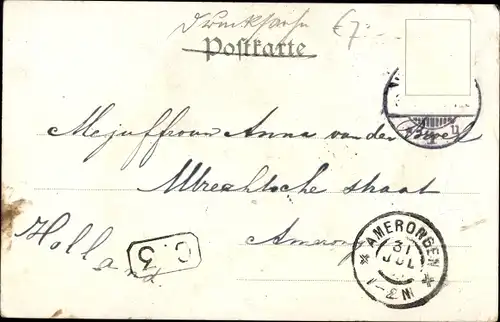 Drucksache €7.-
Postkarte
Mejuffrouw Anna van der
Utrechtsche straat
Amerongen
Holland
C.3
AMERONGEN
31
JUL
1-2 N